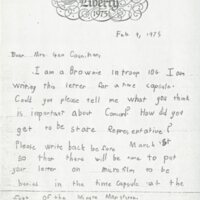 Liberty
1975
Feb 9, 1975
Dear Mrs Von
I am a Brownie in troop 106 I am
writing this letter for a time capsule.
Could you please tell me what you think
is important about Canton? How did you
get to be State Representative?
Please write back before March 1st
so that there will be time to put
your letter on microfilm to be
buried in the time capsule at the
foot of the